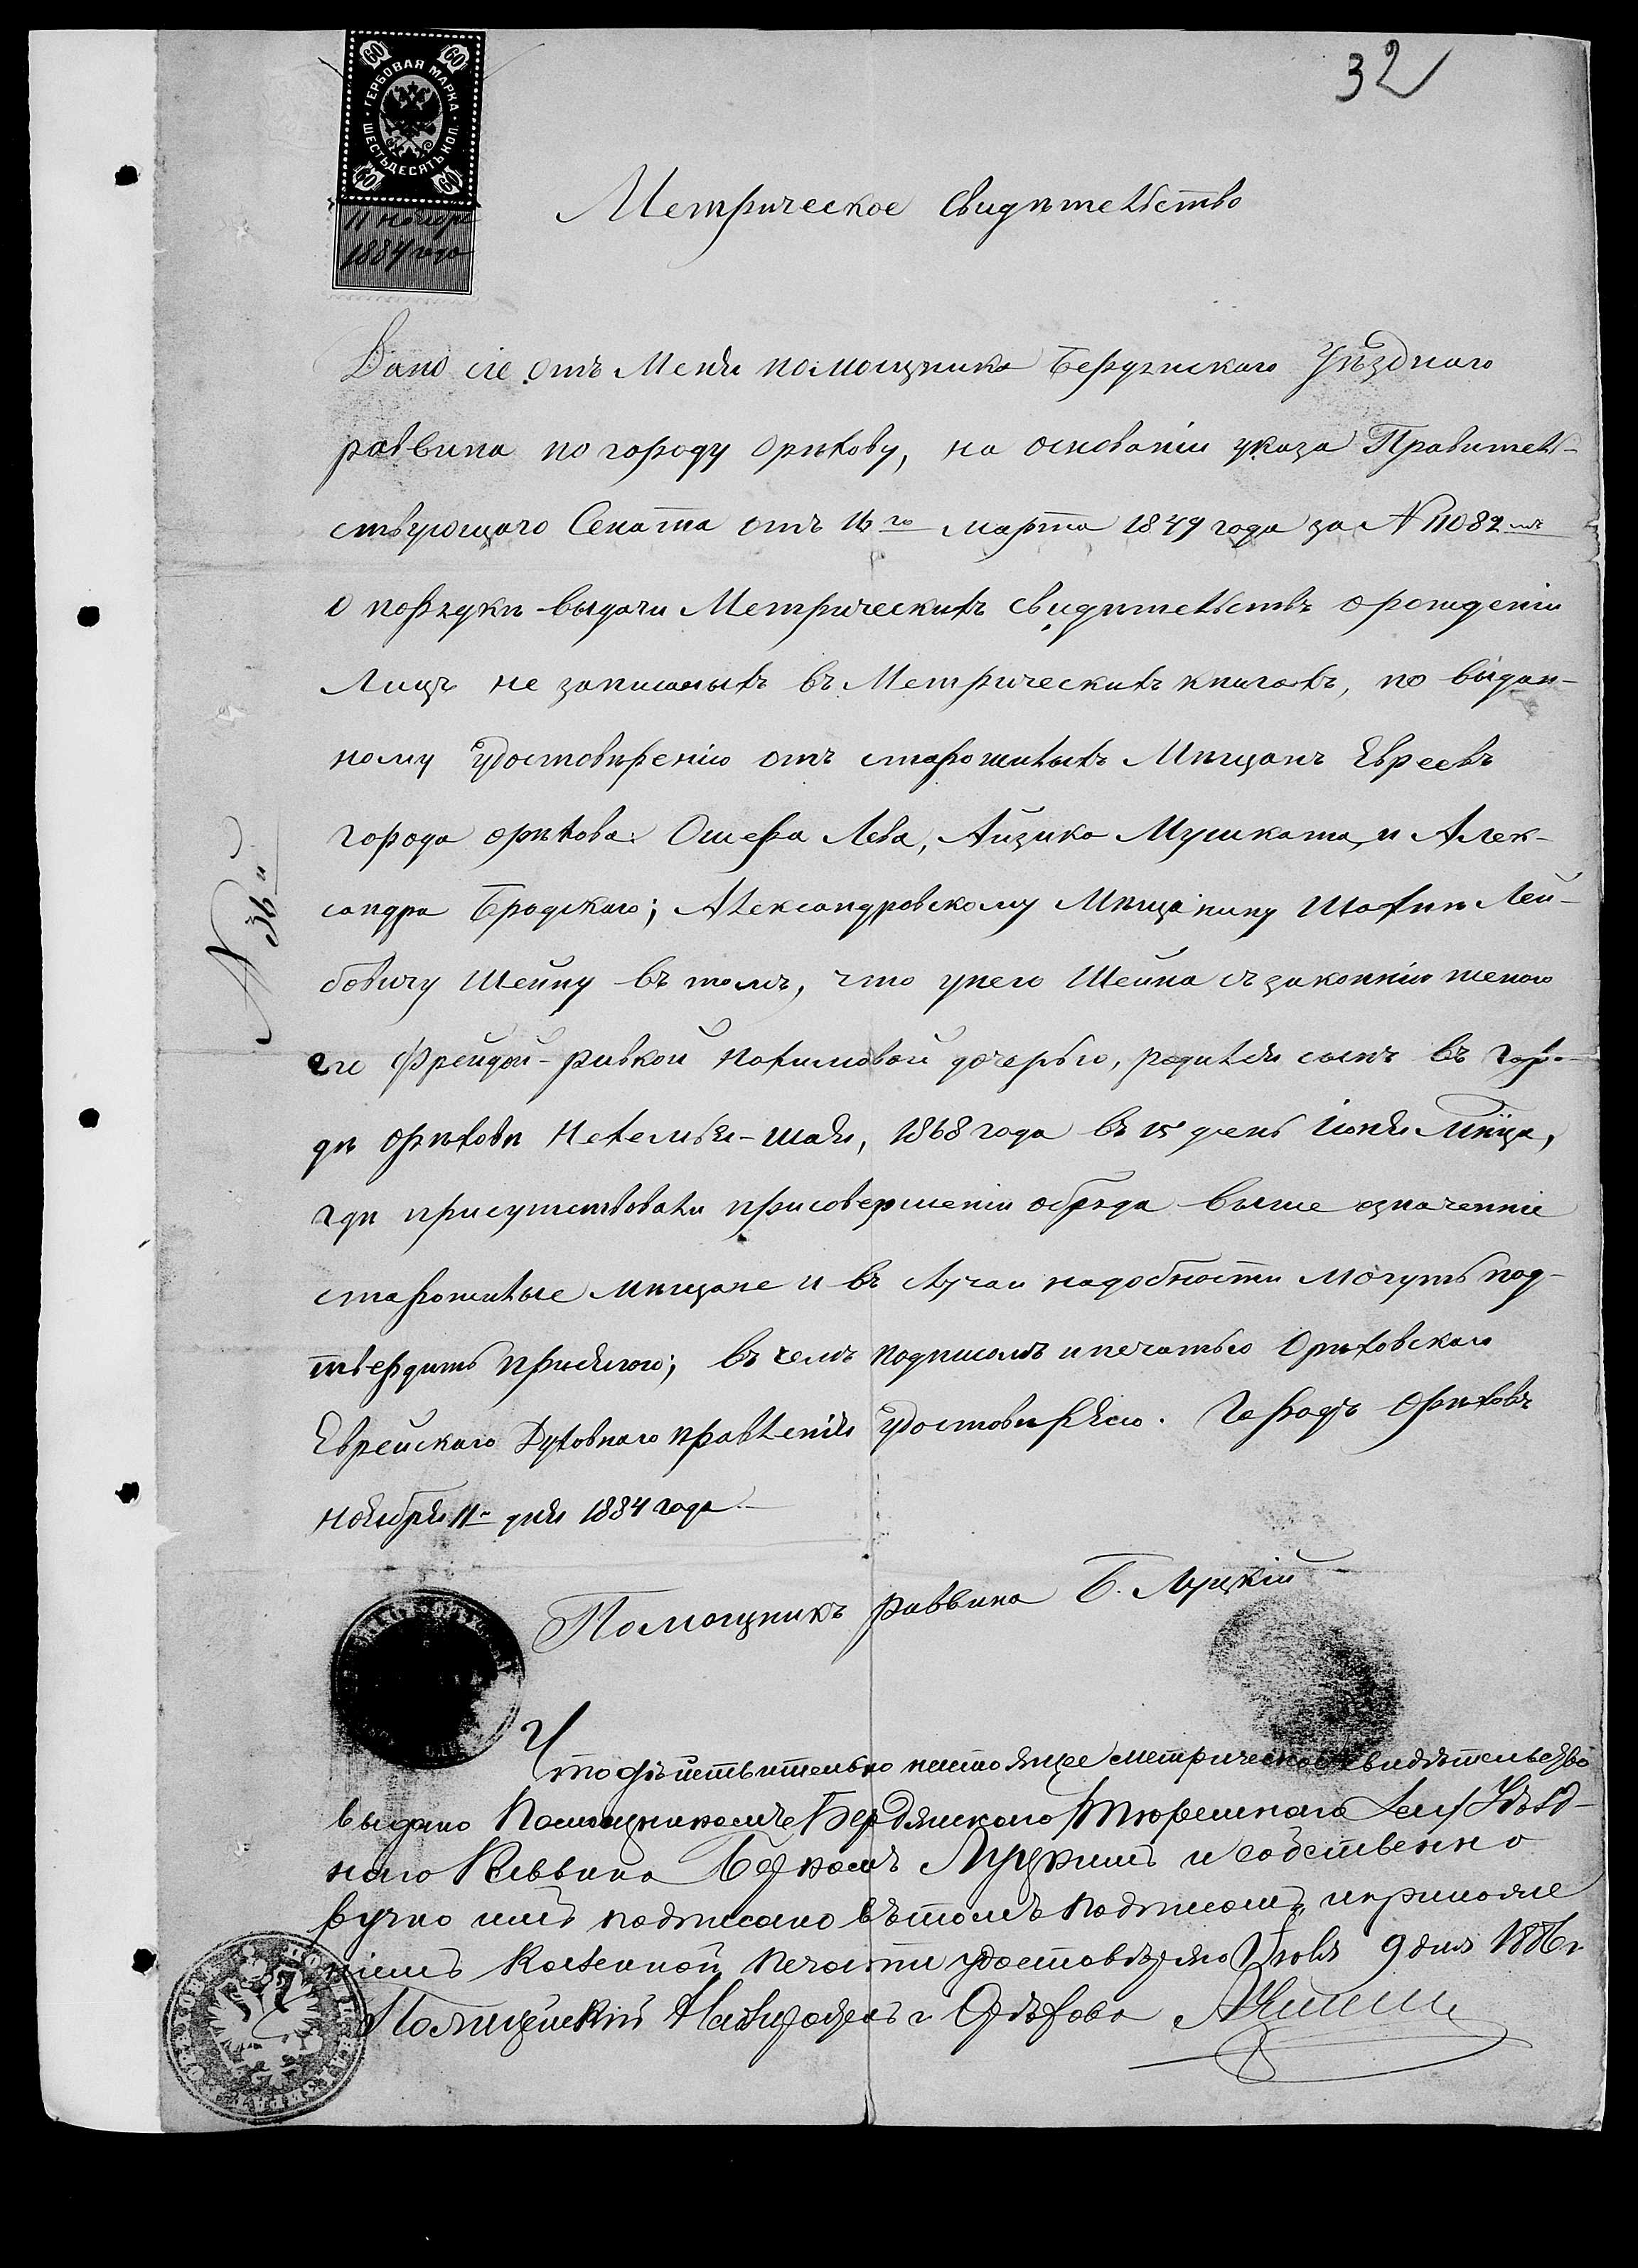 32
60 60
ГЕРБОВАЯ МАРКА
ШЕСТЬДЕСЯТЪ КОП.
60 60
11 ноября
1884 года
Метрическое свидѣтельство
Дано сіе отъ меня помощника Бердянскаго Уѣзднаго
раввина по городу Орѣхову, на основаніи указа Правитель-
ствующаго Сената отъ 16го марта 1849 года за № 11082мъ
о порядкѣ выдачи Метрическихъ свидѣтельствъ о рожденіи
Лицъ не записаныхъ въ Метрическихъ книгахъ, по выдан-
ному удостовѣренію отъ старожилыхъ Мѣщанъ Евреевъ
города Орѣхова: Ошера Лева, Айзика Мушката, и Алек-
сандра Бродскаго; Александровскому Мѣщанину Шахнѣ Лей-
бовичу Шейну въ томъ, что унего Шейна съ законнію женою
его Фрейдой-ривкой Нахимовой дочерью, родился сынъ въ горо-
дѣ Орѣховѣ Нехемья-шая, 1868 года въ 15 день іюня мѣца,
гдѣ присутствовали присовершеніи обряда выше означенніе
старожилые мѣщане и въ случаи надобности могутъ под-
твердить присягою; въ чемъ подписомъ и печатью Орѣховскаго
Еврейскаго Духовнаго правленія удостовѣряю. Городъ Орѣховъ
Ноября 11го дня 1884 года
Помощникъ раввина Б. Луцкій
№ 36й
Что дѣйствительно настоящее метрическое свидѣтельство
выдано Помощникомъ Бердянскаго Уѣзд-
наго Раввина Беркомъ Луцкимъ и собственно
ручно имъ подписано въ томъ подписомъ и приложе
ніемъ Казенной печати удостовѣряю 9 дня 1886 г
Полицейскій Надзиратель г. Орѣхова